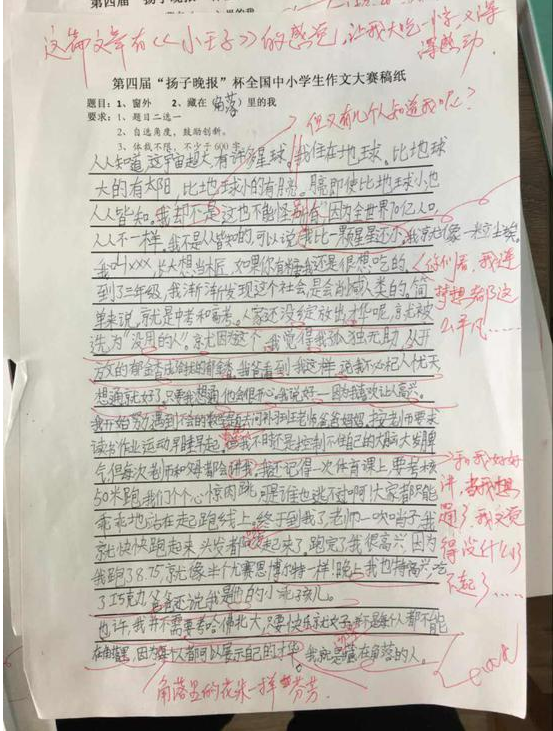 第四届“扬子晚报”
这篇文章有《小王子》的感觉,让我大吃一惊,又深
深感动
第四届“扬子晚报”杯全国中小学生作文大赛稿纸
题目:1、窗外 2、藏在(角落)里的我
要求:1、题目二选一
2、自选角度,鼓励创新。
3、体裁不限,不少于600字
但又有几个人知道我呢?
人人知道这宇宙超大有许多星球。我住在地球。比地球
大的有太阳,比地球小的有月亮。月亮即使比地球小也
人人皆知。我却不是这也不能怪别人因为全世界70亿人口。
人人不一样,我不是人皆知的,可以说我比一颗星星还小我就像一粒尘埃。
我叫xxx,长大想当木匠,如果你有糖我还是很想吃的。
你们看,我连
梦想都这
么平凡……
到了三年级,我渐渐发现这个社会是会削减人类的,简
单来说,就是中考和高考。人家还没绽放出才华呢,就被
选为“没用的人”就因为这个我觉得我孤独无助,
想通就好了。只要我想通他会很开心。我说好 因为我喜欢让人高兴。
我开始努力遇到不会的数学题去问补习班老师爸爸妈妈,按老师要求
读书作业运动早睡早起。但我不时还是控制不住自己的大脑大发脾
气,但每次老师和父母都会讲我我还记得一次体育课上,要考核
和我好好
讲,当我想
通了,我又觉
得没什么
不起了……
50米跑,我们个个心惊肉跳,可是谁也逃不过啊!大家都只能
乖乖地站在起跑线上。终于到我了,老师一吹哨子,我
就快快跑起来,头发都 起来了。跑完了我很高兴,因为
我跑了8.75,就像半个尤赛恩博尔特一样!晚上我也特高兴,吃
了巧克力,爸爸还说我是他的小乖孩儿。
也许,我并不需要考哈佛北大,只要快乐就好并不是每个人都不能
在角落里,因为每个人都可以展示自己的才华。我就是藏在角落的人。
角落里的花朵一样芬芳